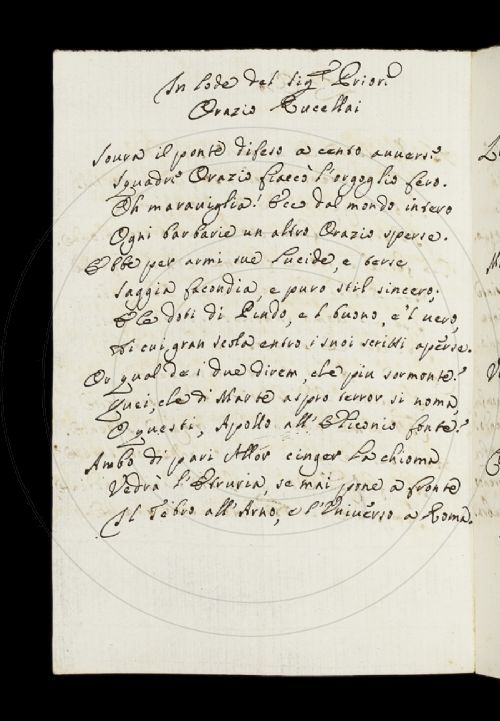 In lode del Sig.r Prior.e
Orazio Rucellai
Soura il ponte difeso a cento auuerse
Squadre Orazio fiaccò l'orgoglio fero.
Oh marauiglia! Fece dal mondo intero
Ogni barbarie un altro Orazio sperse.
Ebbe per armi sue lucide, e terse
Saggia facondia, e puro stil sincero;
E le doti di Pindo, e 'l buono, e 'l uero,
Di cui gran scola entro i suoi scritti aperse.
Or qual de i due direm, che piu sormonte?
Quei, che di Marte aspro terror si noma,
O questi, Apollo all'Eliconio fonte?
Ambo di pari Allor cinger la chioma
Vedrà l'Etruria, se mai pone a fronte
Il Tebro all'Arno, e l'Vniuerso a Roma.